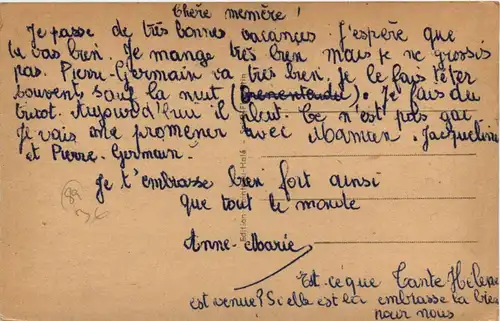 Chère memère !
Je passe de très bonnes vacances. J'espère que
tu vas bien. Je mange très bien mais je ne grossis
pas. Pierre-Germain va très bien, je le fais téter
souvent, sauf la nuit (bien entendu). Je fais du
tricot. Aujourd'hui il pleut. Ce n'est pas gai
Je vais me promener avec Maman, Jacqueline
et Pierre-Germain.
Je t'embrasse bien fort ainsi
que tout le monde
Anne-Marie
Est-ce que Tante Hélène
est venue? Si elle est là embrasse la bien
pour nous
89
Edition